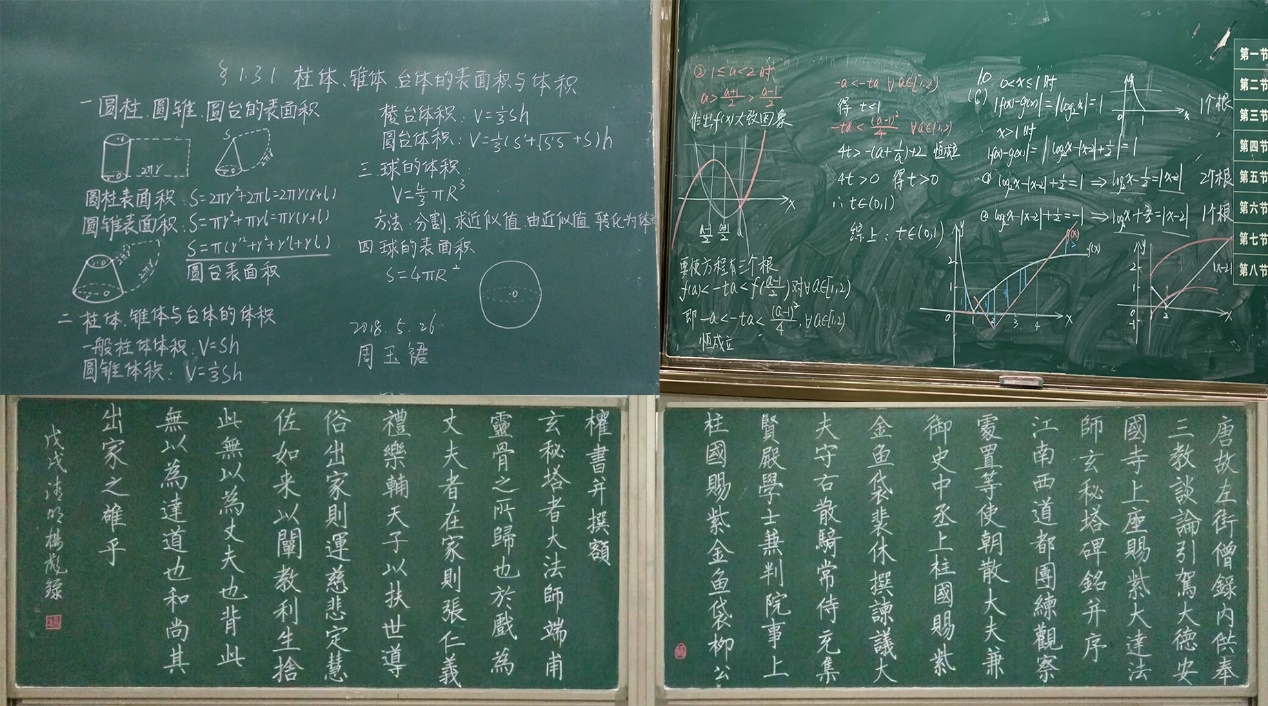 §1.3.1 柱体、锥体、台体的表面积与体积
一.圆柱、圆锥、圆台的表面积
2πr
圆柱表面积:S=2πr²+2πrl=2πr(r+l)
圆锥表面积:S=πr²+πrl=πr(r+l)
S=π(r'²+r²+r'l+rl)
圆台表面积
2πr'
2πr
二.柱体、锥体与台体的体积
一般柱体体积:V=Sh
圆锥体积:V=⅓Sh
棱台体积:V=⅓Sh
圆台体积:V=⅓(S'+√S'S+S)h
三.球的体积
V=4/3πR³
方法:分割,求近似值,由近似值,转化为体
四.球的表面积
S=4πR²
2018.5.26
②1≤a<2时
a>(a+1)/2>(a-1)/2
作出f(x)大致图象
x
要使方程有三个根
f(a)<-ta<f((a-1)/2)对∀a∈[1,2)
即-a<-ta<(a-1)²/4,∀a∈[1,2)
恒成立
-a<-ta ∀a∈[1,2)
得t<1
-ta<(a-1)²/4 ∀a∈[1,2)
4t>-(a+1/a)+2 恒成立
4t>0 得t>0
∴t∈(0,1)
综上:t∈(0,1)
10 0<x≤1时
|f(x)-g(x)|=|log₂x|=1
1个根
x>1时
|f(x)-g(x)|=|log₂x-|x-2|+½|=1
①log₂x-|x-2|+½=1⇒log₂x-½=|x-2|
2个根
②log₂x-|x-2|+½=-1⇒log₂x+3/2=|x-2|
1个根
y
2
1
0
3
4
x
y
2
1
0
-1
2
x
|x-2|
第一节
第二节
第三节
第四节
第五节
第六节
第七节
第八节
權書并撰額
玄秘塔者大法師端甫
靈骨之所歸也於戲為
丈夫者在家則張仁義
禮樂輔天子以扶世導
俗出家則運慈悲定慧
佐如来以闡教利生捨
此無以為丈夫也背此
無以為達道也和尚其
出家之雄乎
唐故左街僧録内供奉
三教談論引駕大德安
國寺上座賜紫大達法
師玄秘塔碑銘并序
江南西道都團練觀察
處置等使朝散大夫兼
御史中丞上柱國賜紫
金魚袋裴休撰諫議大
夫守右散騎常侍充集
賢殿學士兼判院事上
柱國賜紫金魚袋柳公